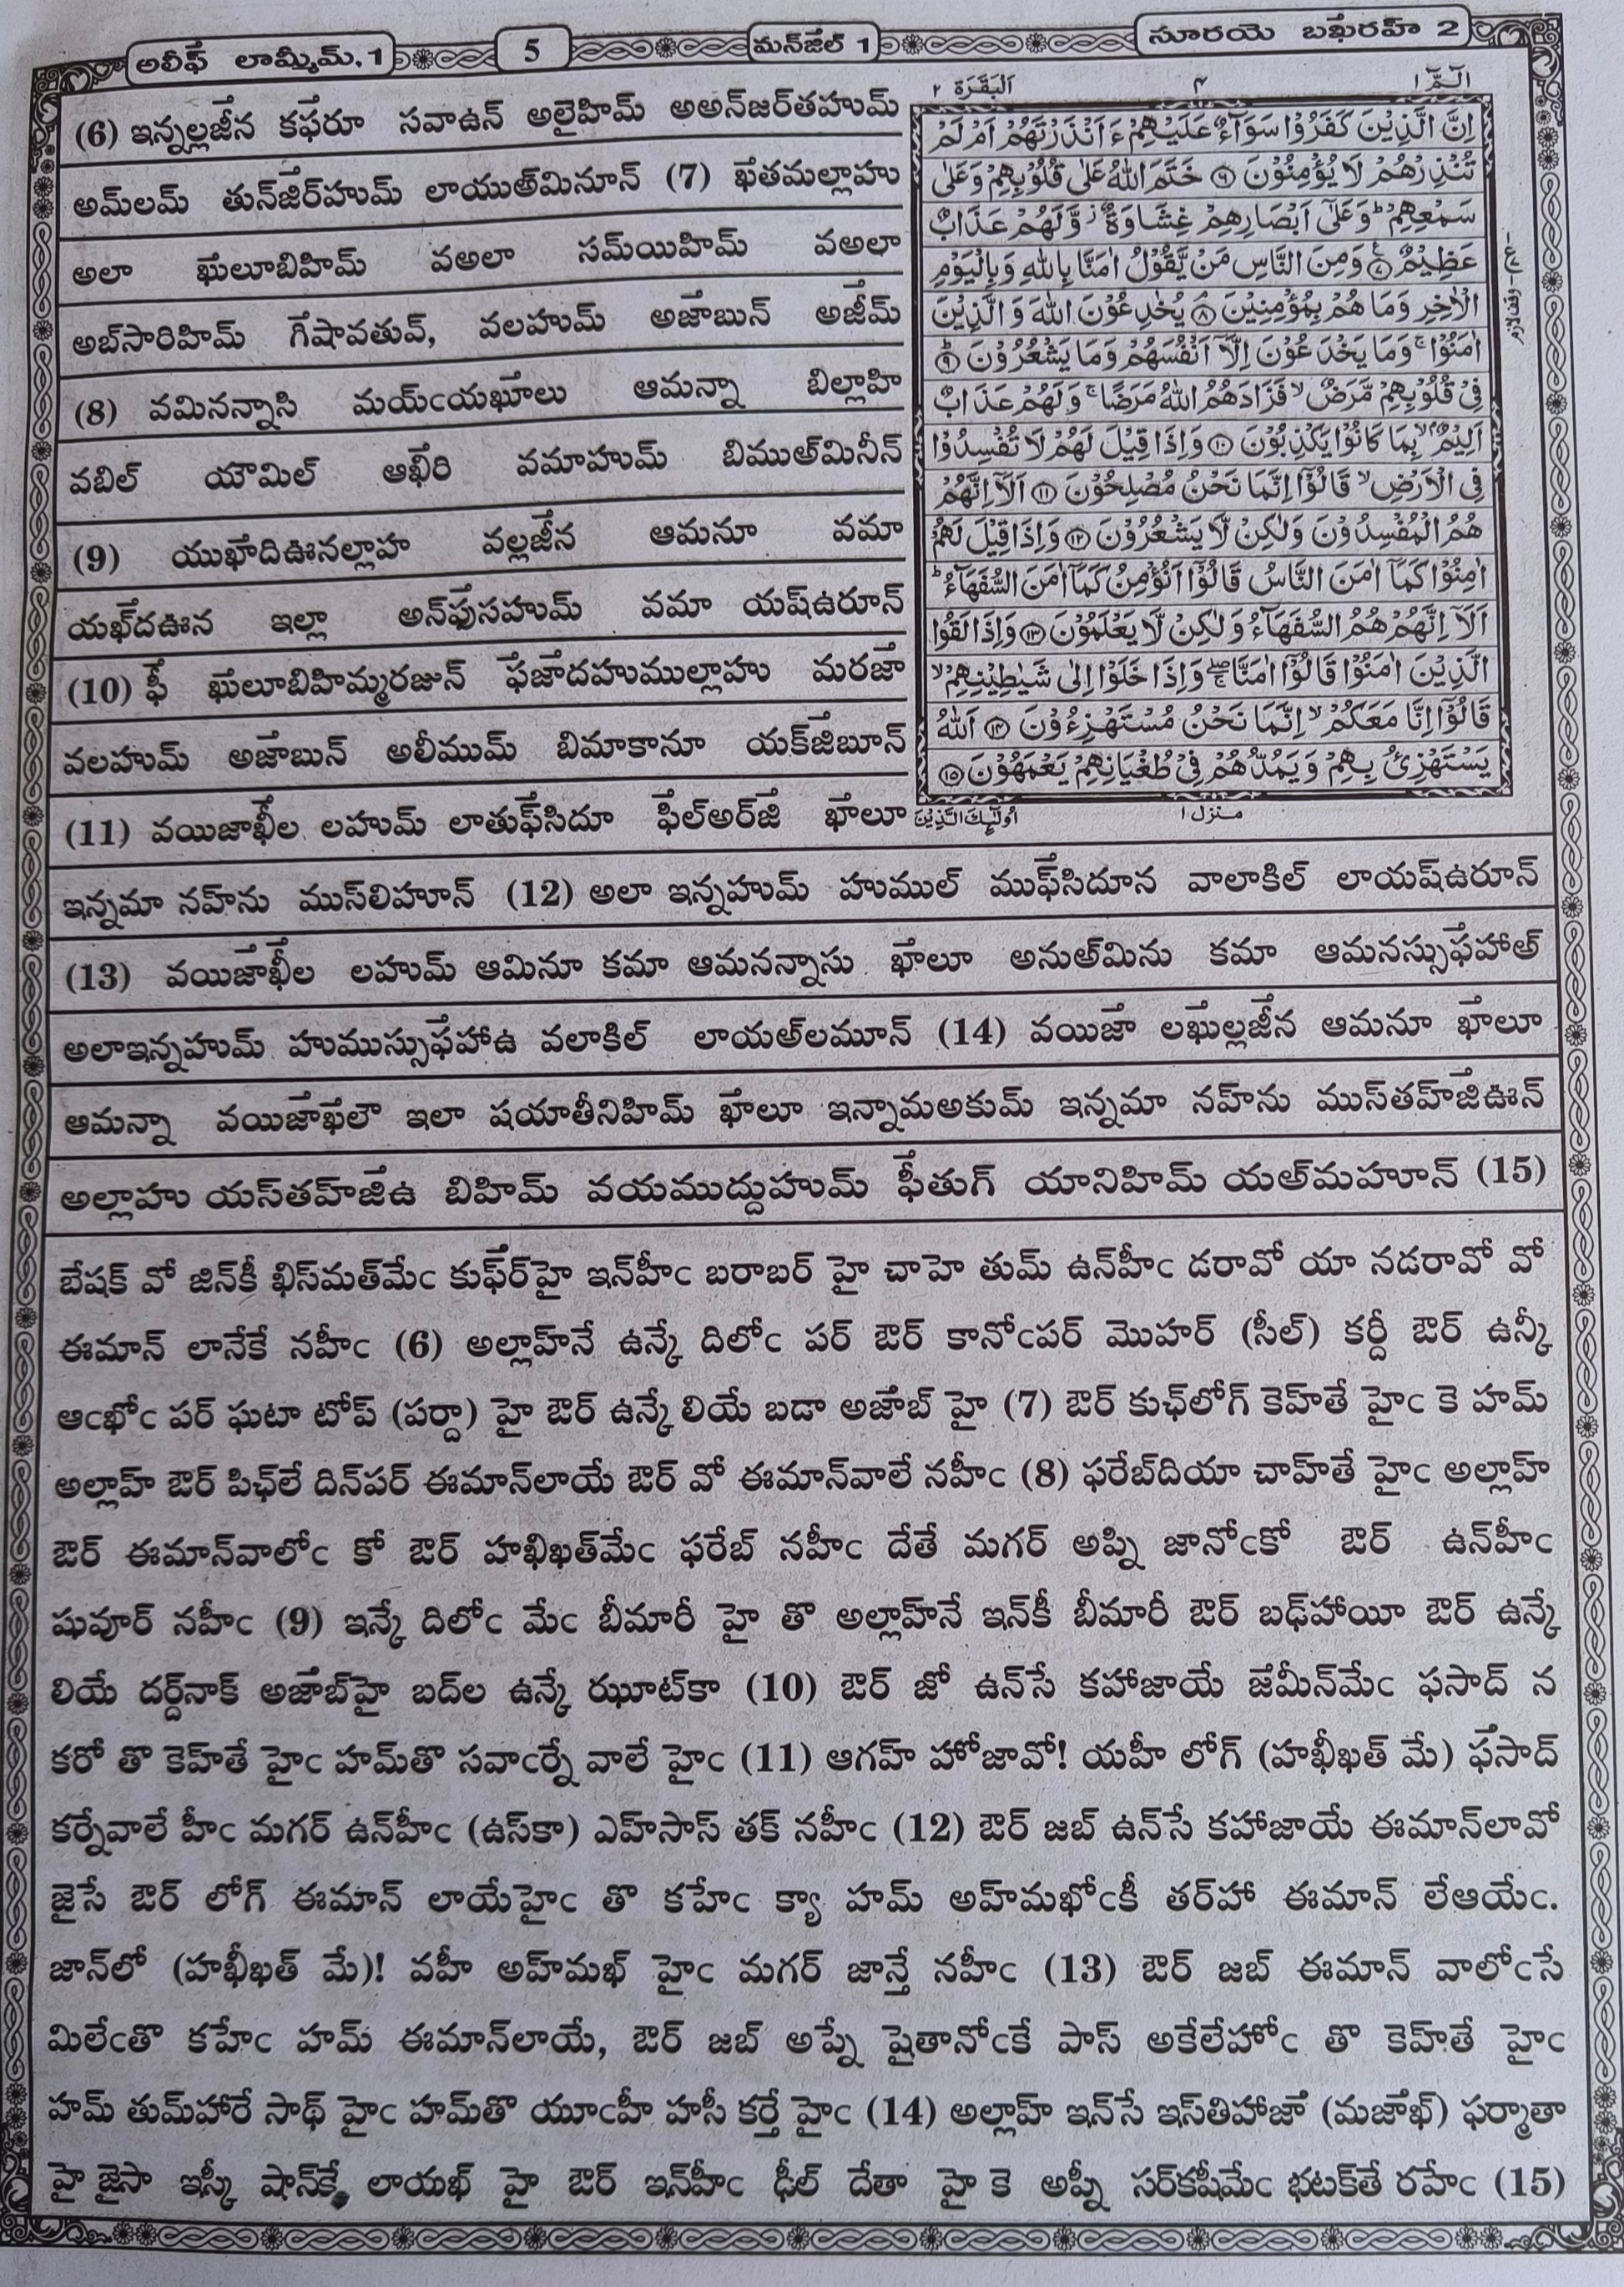 అలీఫ్ లామ్మీమ్.1
5
మన్‌జేల్ 1
సూరయె బఖేరహ్ 2
(6) ఇన్నల్లజీన కఫరూ సవాఉన్ అలైహిమ్ అఅన్‌జర్‌తహుమ్
అమ్‌లమ్ తున్‌జిర్‌హుమ్ లాయుఅ్‌మినూన్ (7) ఖేతమల్లాహు
అలా ఖేులూబిహిమ్ వఅలా సమ్‌యిహిమ్ వఅలా
అబ్‌సారిహిమ్ గేషావతువ్, వలహుమ్ అజాబున్ అజీమ్
(8) వమినన్నాసి మయ్‌ఁయఖూలు ఆమన్నా బిల్లాహి
వబిల్ యౌమిల్ ఆఖిరి వమాహుమ్ బిముఅ్‌మినీన్
(9) యుఖాదిఊనల్లాహ వల్లజీన ఆమనూ వమా
యఖ్‌దఊన ఇల్లా అన్‌ఫుసహుమ్ వమా యష్‌ఉరూన్
(10) ఫీ ఖేులూబిహిమ్మరజున్ ఫేజాదహుముల్లాహు మరజా
వలహుమ్ అజాబున్ అలీముమ్ బిమాకానూ యక్‌జిబూన్
(11) వయిజాఖీల లహుమ్ లాతుఫ్‌సిదూ ఫిల్‌అర్‌జి ఖాలూ
الٓمّٓ ١
٤
اَلْبَقَرَة ٢
اِنَّ الَّذِيْنَ كَفَرُوْا سَوَآءٌ عَلَيْهِمْ ءَاَنْذَرْتَهُمْ اَمْ لَمْ
تُنْذِرْهُمْ لَا يُؤْمِنُوْنَ ۶ خَتَمَ اللّٰهُ عَلٰى قُلُوْبِهِمْ وَعَلٰى
سَمْعِهِمْ ؕ وَعَلٰٓى اَبْصَارِهِمْ غِشَاوَةٌ ؗ وَّلَهُمْ عَذَابٌ
عَظِيْمٌ ۷ وَمِنَ النَّاسِ مَنْ يَّقُوْلُ اٰمَنَّا بِاللّٰهِ وَبِالْيَوْمِ
الْاٰخِرِ وَمَا هُمْ بِمُؤْمِنِيْنَ ۸ يُخٰدِعُوْنَ اللّٰهَ وَالَّذِيْنَ
اٰمَنُوْا ۚ وَمَا يَخْدَعُوْنَ اِلَّآ اَنْفُسَهُمْ وَمَا يَشْعُرُوْنَ ۹
فِيْ قُلُوْبِهِمْ مَّرَضٌ ۙ فَزَادَهُمُ اللّٰهُ مَرَضًا ۚ وَلَهُمْ عَذَابٌ
اَلِيْمٌ ۙ بِمَا كَانُوْا يَكْذِبُوْنَ ۱۰ وَاِذَا قِيْلَ لَهُمْ لَا تُفْسِدُوْا
فِي الْاَرْضِ ۙ قَالُوْٓا اِنَّمَا نَحْنُ مُصْلِحُوْنَ ۱۱ اَلَآ اِنَّهُمْ
هُمُ الْمُفْسِدُوْنَ وَلٰكِنْ لَّا يَشْعُرُوْنَ ۱۲ وَاِذَا قِيْلَ لَهُمْ
اٰمِنُوْا كَمَآ اٰمَنَ النَّاسُ قَالُوْٓا اَنُؤْمِنُ كَمَآ اٰمَنَ السُّفَهَآءُ ؕ
اَلَآ اِنَّهُمْ هُمُ السُّفَهَآءُ وَلٰكِنْ لَّا يَعْلَمُوْنَ ۱۳ وَاِذَا لَقُوا
الَّذِيْنَ اٰمَنُوْا قَالُوْٓا اٰمَنَّا ۖ وَاِذَا خَلَوْا اِلٰى شَيٰطِيْنِهِمْ ۙ
قَالُوْٓا اِنَّا مَعَكُمْ ۙ اِنَّمَا نَحْنُ مُسْتَهْزِءُوْنَ ۱۴ اَللّٰهُ
يَسْتَهْزِئُ بِهِمْ وَيَمُدُّهُمْ فِيْ طُغْيَانِهِمْ يَعْمَهُوْنَ ۱۵
منزل ١
اُولٰٓئِكَ الَّذِيْنَ
ఇన్నమా నహ్‌ను ముస్‌లిహూన్ (12) అలా ఇన్నహుమ్ హుముల్ ముఫ్‌సిదూన వాలాకిల్ లాయష్‌ఉరూన్
(13) వయిజాఖీల లహుమ్ ఆమినూ కమా ఆమనన్నాసు ఖాలూ అనుఅ్‌మిను కమా ఆమనస్సుఫహాఅ్
అలాఇన్నహుమ్ హుముస్సుఫేహాఉ వలాకిల్ లాయఅ్‌లమూన్ (14) వయిజా లఖుల్లజీన ఆమనూ ఖాలూ
ఆమన్నా వయిజాఖేలౌ ఇలా షయాతీనిహిమ్ ఖాలూ ఇన్నామఅకుమ్ ఇన్నమా నహ్‌ను ముస్‌తహ్‌జిఊన్
అల్లాహు యస్‌తహ్‌జిఉ బిహిమ్ వయముద్దుహుమ్ ఫీతుగ్ యానిహిమ్ యఅ్‌మహూన్ (15)
బేషక్ వో జిన్‌కీ ఖిస్‌మత్‌మేఁ కుఫ్‌ర్‌హై ఇన్‌హీఁ బరాబర్ హై చాహె తుమ్ ఉన్‌హీఁ డరావో యా నడరావో వో
ఈమాన్ లానేకే నహీఁ (6) అల్లాహ్‌నే ఉన్కే దిలోఁ పర్ ఔర్ కానోఁపర్ మొహర్ (సీల్) కర్దీ ఔర్ ఉన్కీ
ఆఁఖోఁ పర్ ఘటా టోప్ (పర్దా) హై ఔర్ ఉన్కే లియే బడా అజాబ్ హై (7) ఔర్ కుఛ్‌లోగ్ కెహ్‌తే హైఁ కె హమ్
అల్లాహ్ ఔర్ పిఛ్‌లే దిన్‌పర్ ఈమాన్‌లాయే ఔర్ వో ఈమాన్‌వాలే నహీఁ (8) ఫరేబ్‌దియా చాహ్‌తే హైఁ అల్లాహ్
ఔర్ ఈమాన్‌వాలోఁ కో ఔర్ హఖిఖత్‌మేఁ ఫరేబ్ నహీఁ దేతే మగర్ అప్ని జానోఁకో ఔర్ ఉన్‌హీఁ
షువూర్ నహీఁ (9) ఇన్కే దిలోఁ మేఁ బీమారీ హై తొ అల్లాహ్‌నే ఇన్‌కీ బీమారీ ఔర్ బఢ్‌హాయీ ఔర్ ఉన్కే
లియే దర్ద్‌నాక్ అజాబ్‌హై బద్‌ల ఉన్కే ఝూట్‌కా (10) ఔర్ జో ఉన్‌సే కహాజాయే జేమీన్‌మేఁ ఫసాద్ న
కరో తొ కెహ్‌తే హైఁ హమ్‌తొ సవాఁర్నే వాలే హైఁ (11) ఆగహ్ హోజావో! యహీ లోగ్ (హఖీఖత్ మే) ఫసాద్
కర్నేవాలే హీఁ మగర్ ఉన్‌హీఁ (ఉస్‌కా) ఎహ్‌సాస్ తక్ నహీఁ (12) ఔర్ జబ్ ఉన్‌సే కహాజాయే ఈమాన్‌లావో
జైసే ఔర్ లోగ్ ఈమాన్ లాయేహైఁ తొ కహేఁ క్యా హమ్ అహ్‌మఖోఁకీ తర్‌హా ఈమాన్ లేఆయేఁ.
జాన్‌లో (హఖీఖత్ మే)! వహీ అహ్‌మఖ్ హైఁ మగర్ జాన్తే నహీఁ (13) ఔర్ జబ్ ఈమాన్ వాలోఁసే
మిలేఁతొ కహేఁ హమ్ ఈమాన్‌లాయే, ఔర్ జబ్ అప్నే షైతానోఁకే పాస్ అకేలేహోఁ తొ కెహ్‌తే హైఁ
హమ్ తుమ్‌హారే సాథ్ హైఁ హమ్‌తొ యూఁహీ హసీ కర్తే హైఁ (14) అల్లాహ్ ఇన్‌సే ఇస్‌తిహాజా (మజాఖ్) ఫర్మాతా
హై జైసా ఇస్కీ షాన్‌కే లాయఖ్ హై ఔర్ ఇన్‌హీఁ ఢీల్ దేతా హై కె అప్నీ సర్‌కషీమేఁ భటక్‌తే రహేఁ (15)